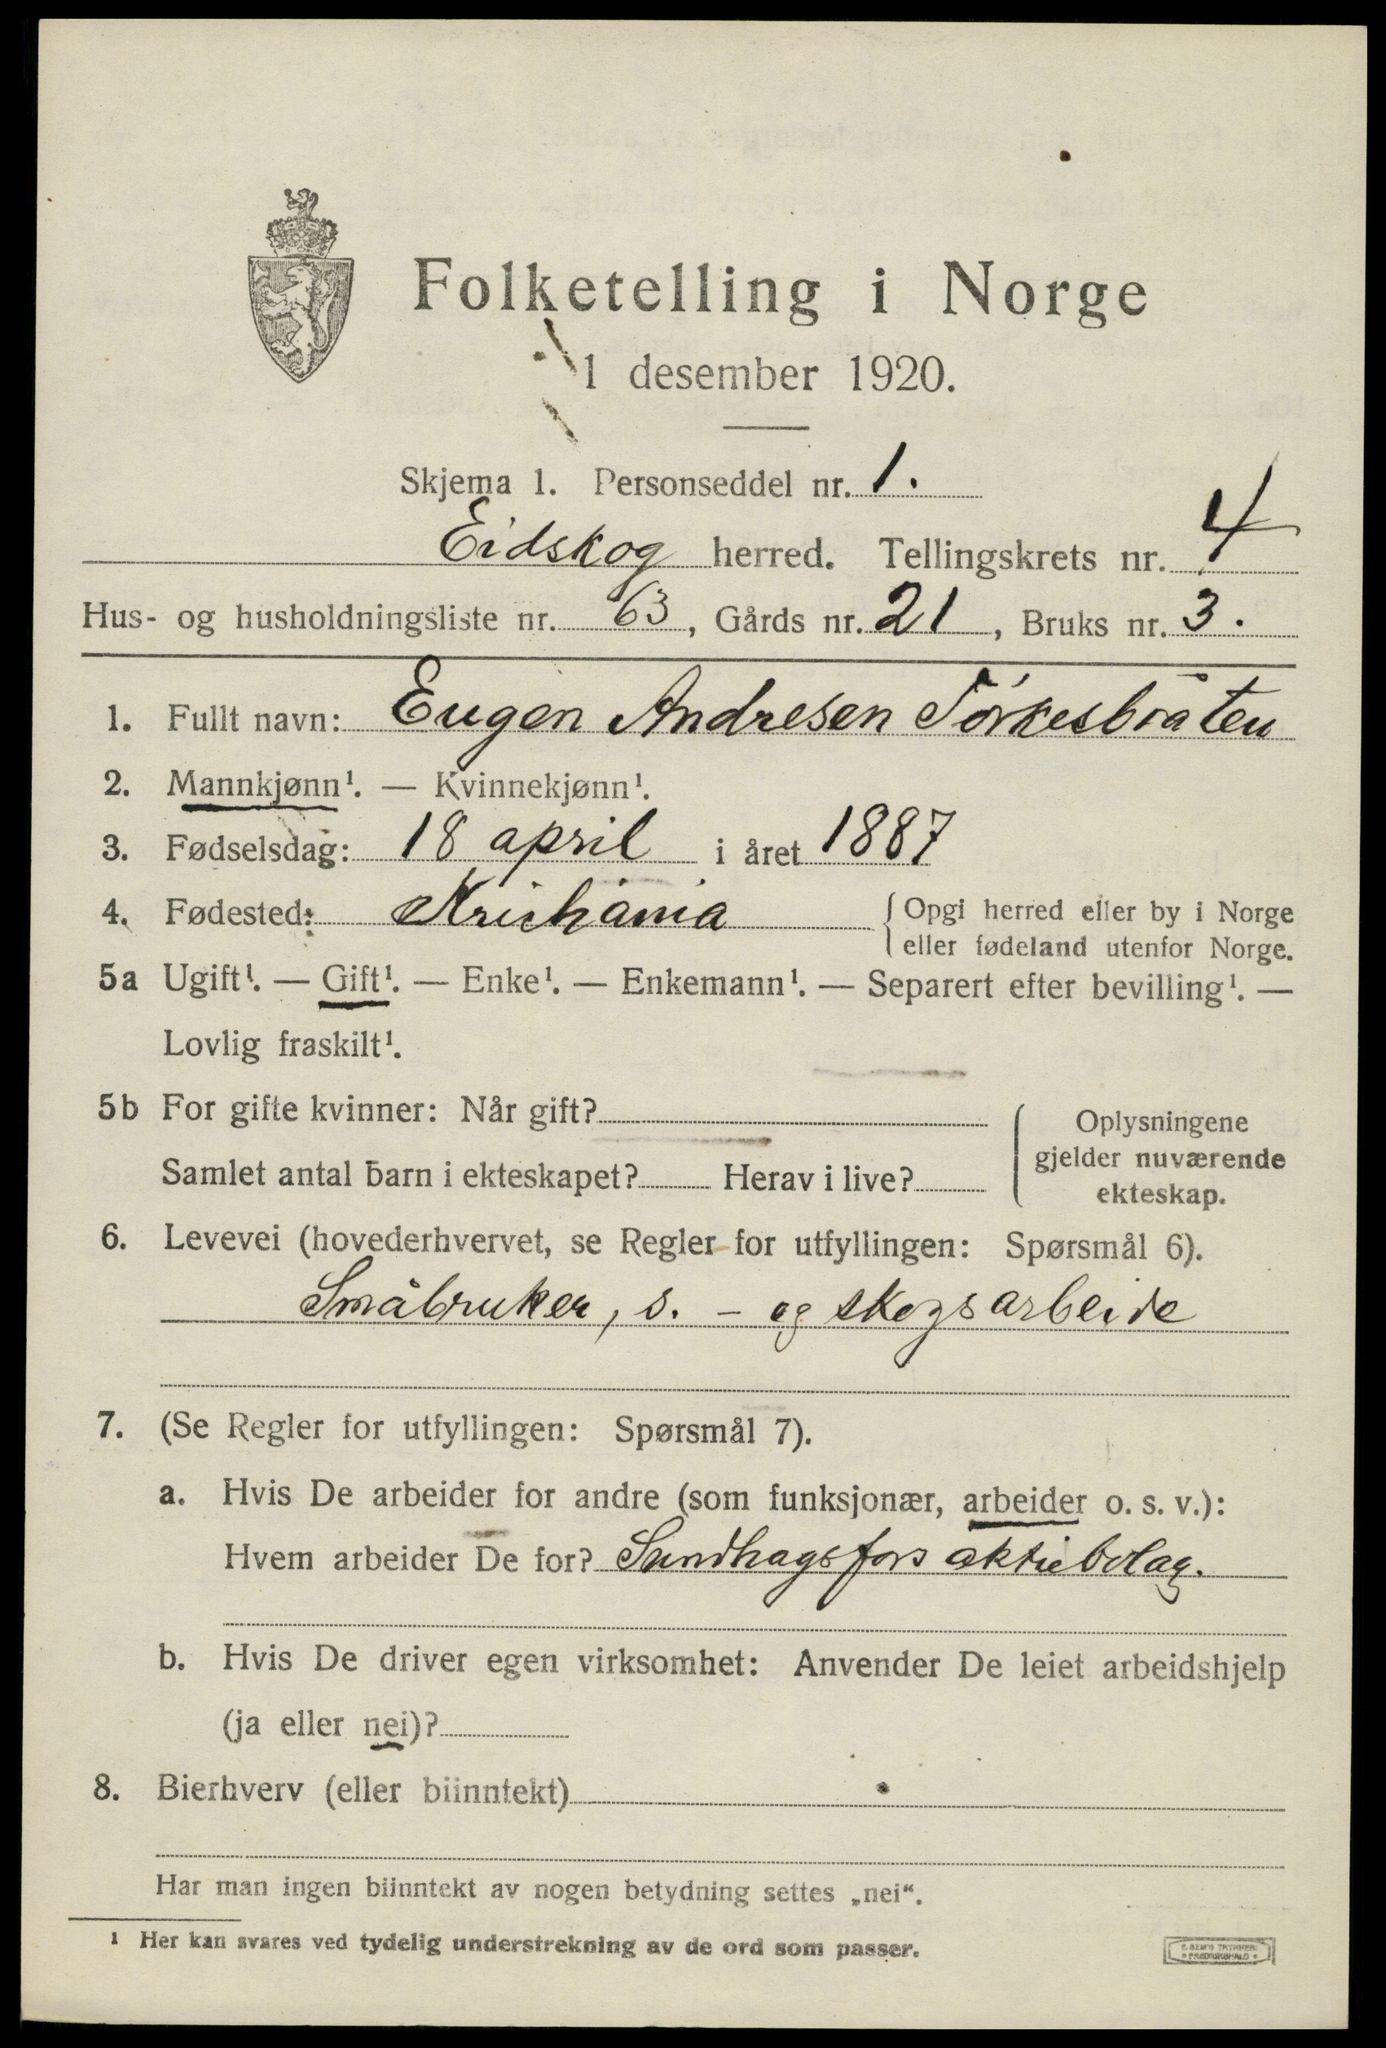 Folketelling i Norge
1 desember 1920.
Skjema 1. Personseddel nr. 1.
Eidskog herred. Tellingskrets nr. 4
Hus- og husholdningsliste nr. 63, Gårds nr. 21, Bruks nr. 3.
1. Fullt navn: Eugen Andresen Törkesbråten
2. Mannkjønn¹. — Kvinnekjønn¹.
3. Fødselsdag: 18 april i året 1887
4. Fødested: Kristiania { Opgi herred eller by i Norge
eller fødeland utenfor Norge.
5a Ugift¹. — Gift¹. — Enke¹. — Enkemann¹. — Separert efter bevilling¹. —
Lovlig fraskilt¹.
5b For gifte kvinner: Når gift?
Samlet antal barn i ekteskapet? Herav i live?
Oplysningene
gjelder nuværende
ekteskap.
6. Levevei (hovederhvervet, se Regler for utfyllingen: Spørsmål 6).
Småbruker, s. - og skogsarbeide
7. (Se Regler for utfyllingen: Spørsmål 7).
a. Hvis De arbeider for andre (som funksjonær, arbeider o. s. v.):
Hvem arbeider De for? Sundhagsfors aktiebolag.
b. Hvis De driver egen virksomhet: Anvender De leiet arbeidshjelp
(ja eller nei)?
8. Bierhverv (eller biinntekt)
Har man ingen biinntekt av nogen betydning settes „nei“.
¹ Her kan svares ved tydelig understrekning av de ord som passer.